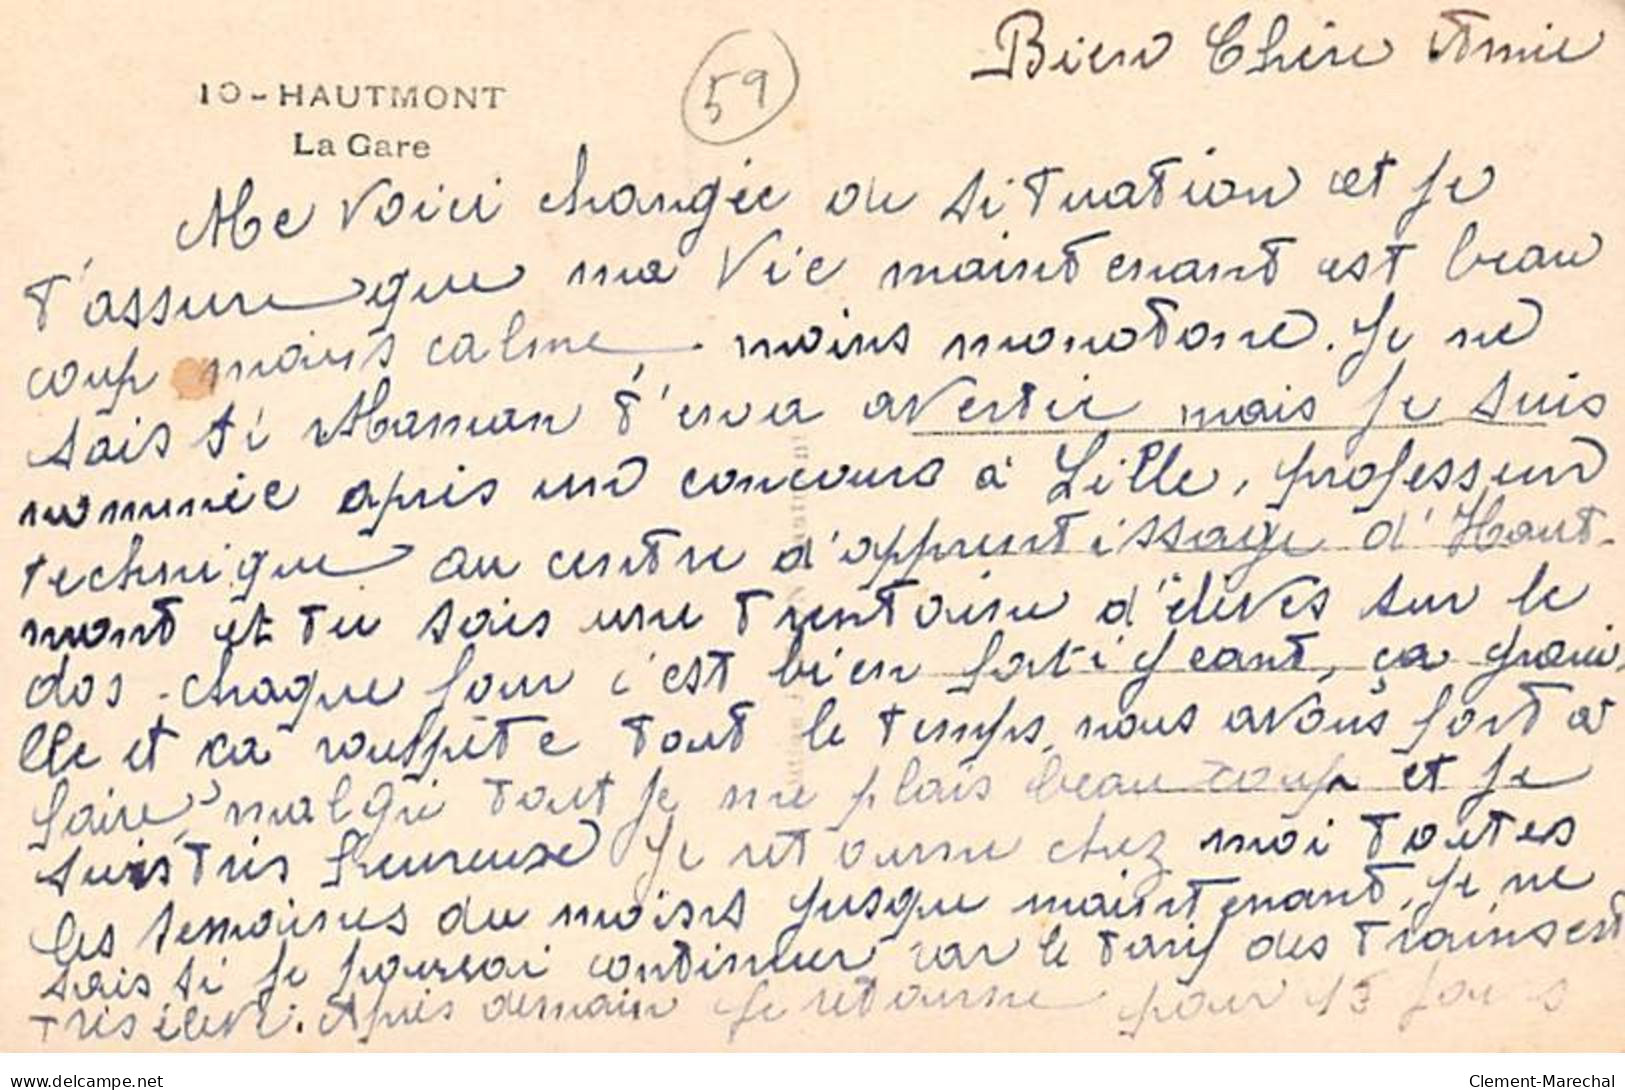 Bien Chère Amie
59
10 - HAUTMONT
La Gare
Me voici changée de situation et je
t'assure que ma vie maintenant est beau
coup moins calme - moins monotone. Je ne
sais si Maman t'en a avertie mais je suis
nommée après un concours à Lille, professeur
technique au centre d'apprentissage d'Haut-
mont et tu sais une trentaine d'élèves sur le
dos - chaque jour c'est bien fatigeant, ça piaui
lle et ça rouspète tout le temps, nous avons fort à
faire, malgré tout je me plais beaucoup et je
suis très heureuse Je retourne chez moi toutes
les semaines du moins jusque maintenant, je ne
sais si je pourrai continuer car le tarif des trains est
très élevé. Après demain je retourne pour 15 jours
www.delcampe.net
Clement-Marechal